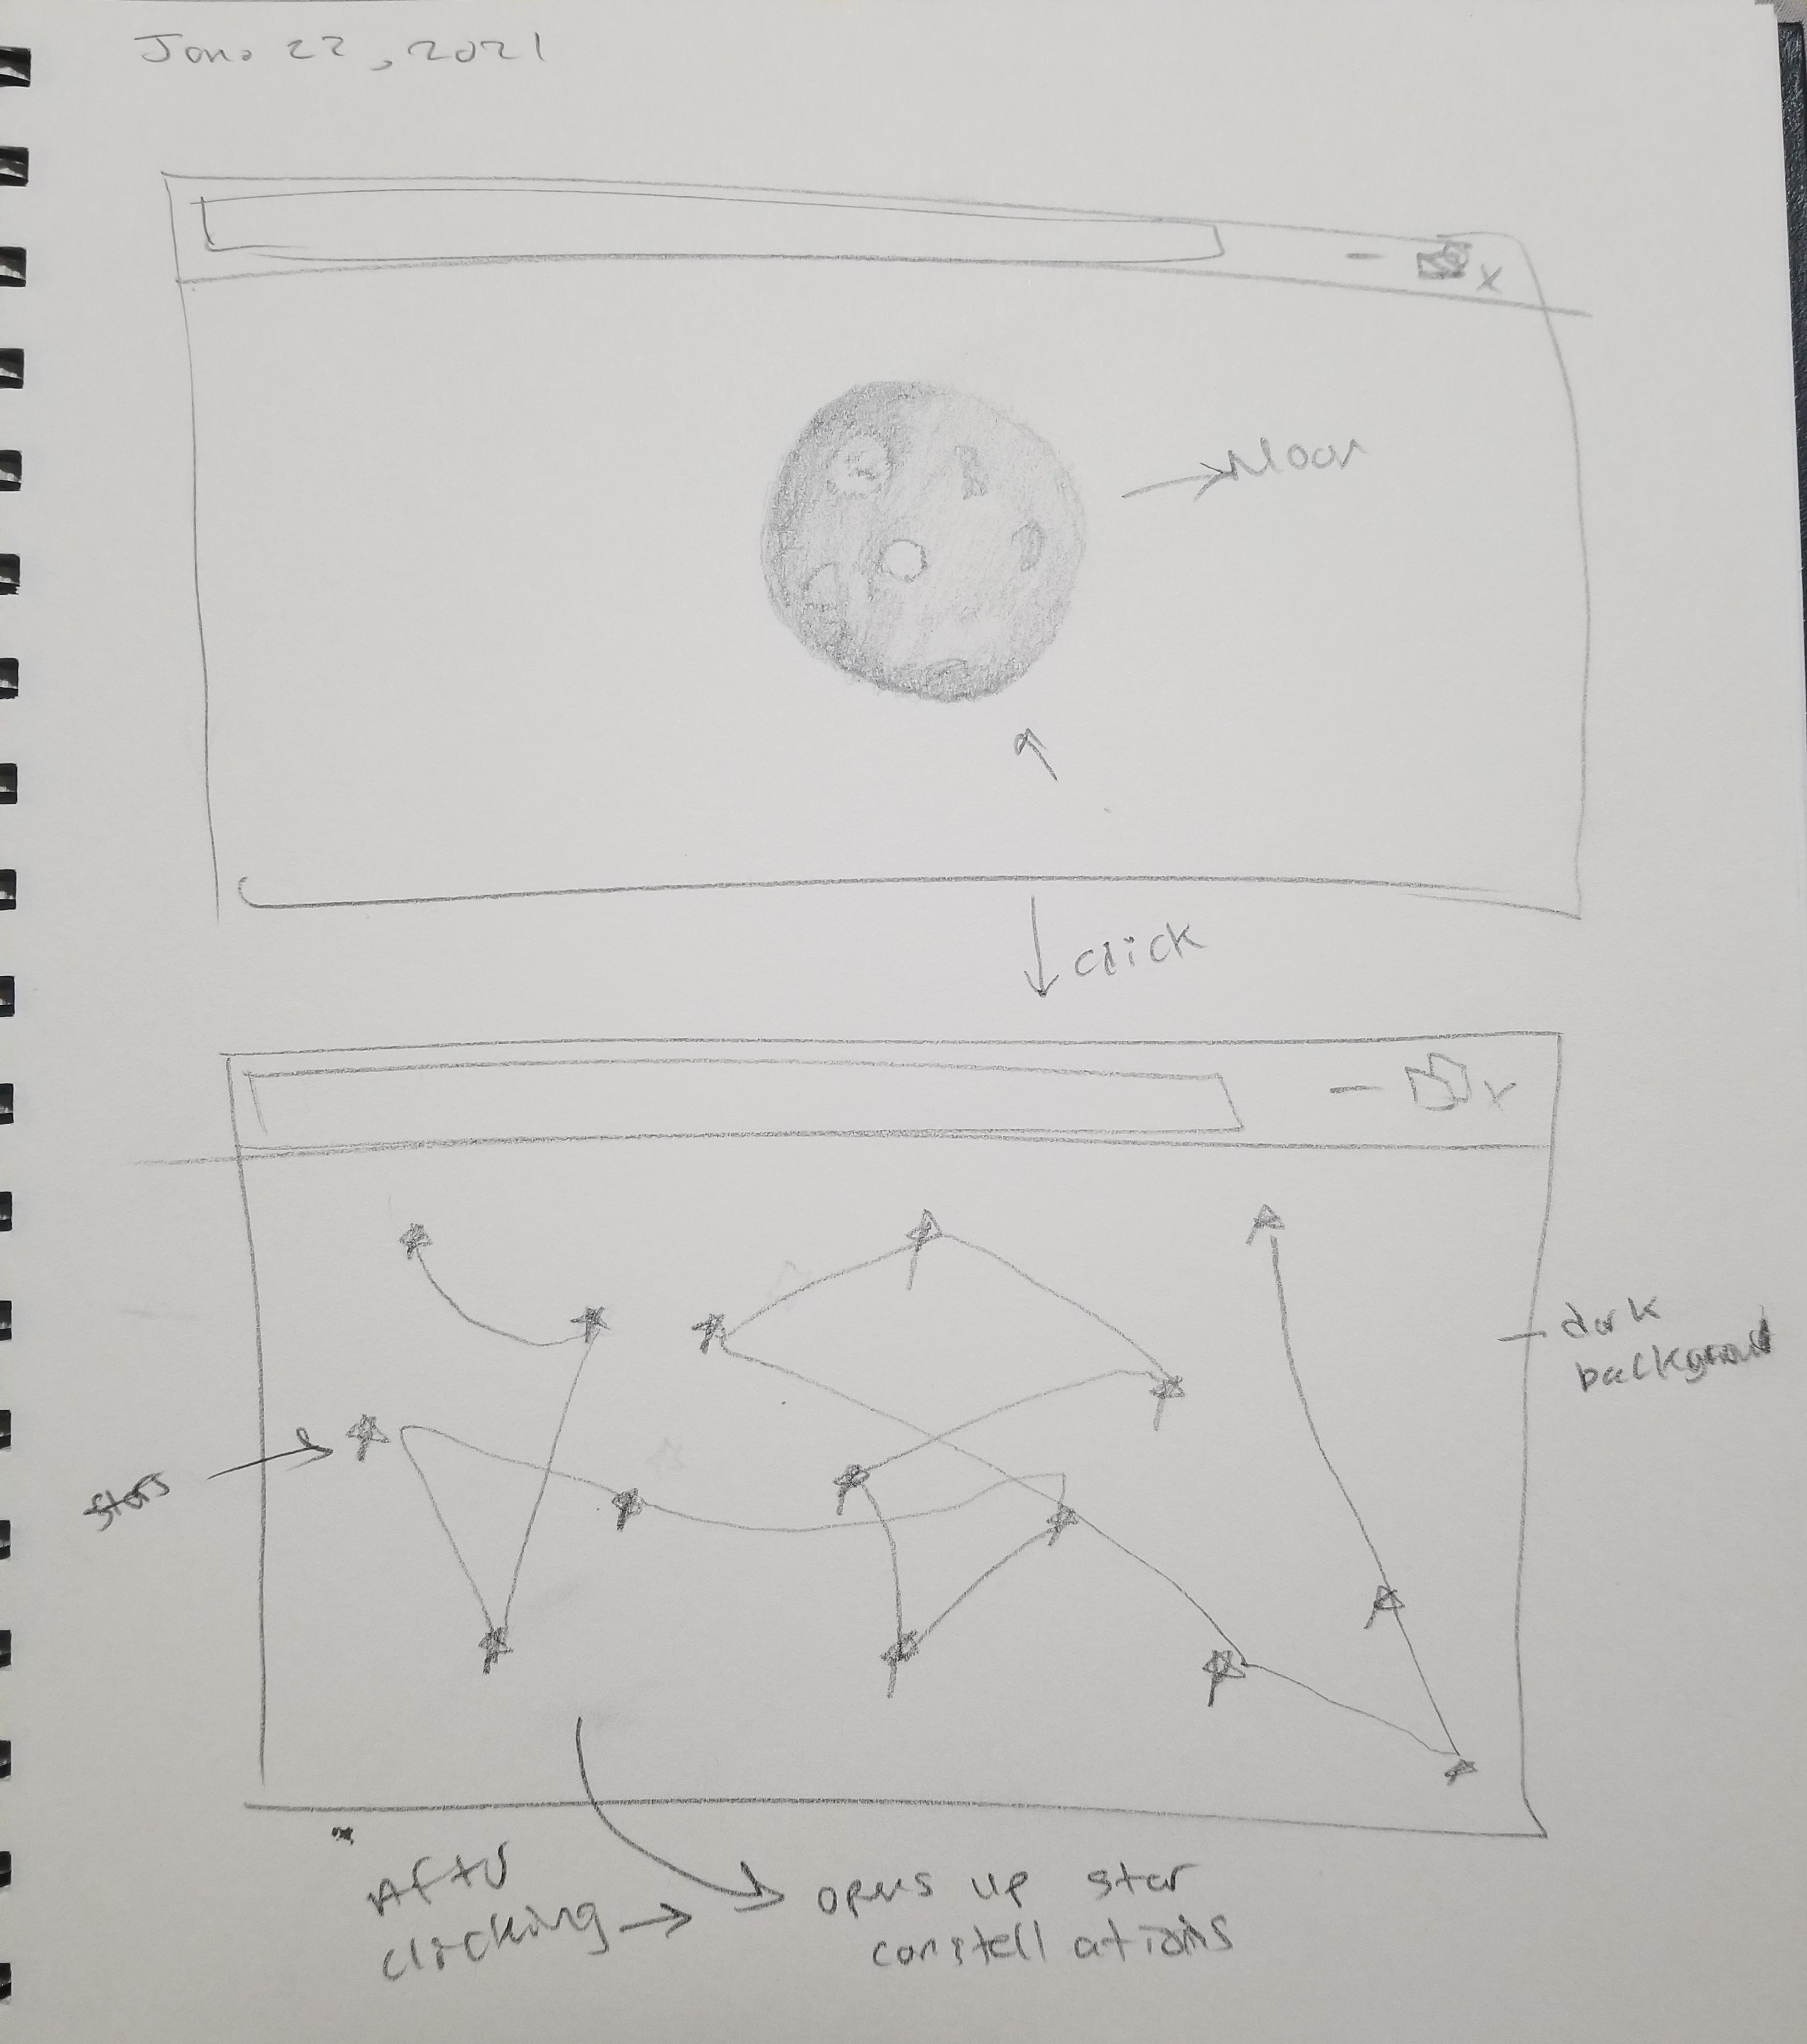 Jan. 22, 2021
Moon
click
dark
background
stars
After
clicking
opens up star
constellations